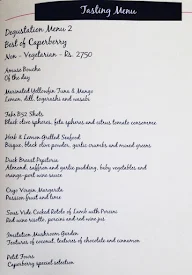 Tasting Menu
Degustation Menu 2
Best of Caperberry
Non - Vegetarian - Rs. 2750
Amuse Bouche
Of the day
Marinated Yellowfin Tuna & Mango
Lemon, dill, togarashi and wasabi
Feta B52 Shots
Black olive spheres, feta spheres and citrus tomato consomme
Herb & Lemon Grilled Seafood
Bisque, black olive powder, garlic crumbs and mixed greens
Duck Breast Pepitoria
Almond, saffron and garlic pudding, baby vegetables and
orange-port wine sauce
Cryo Virgin Margarita
Passion fruit and lime
Sous Vide Cooked Rotolo of Lamb with Porcini
Red wine risotto, porcini and red wine jus
Imitation Mushroom Garden
Textures of coconut, textures of chocolate and cinnamon
Petit Fours
Caperberry special selection